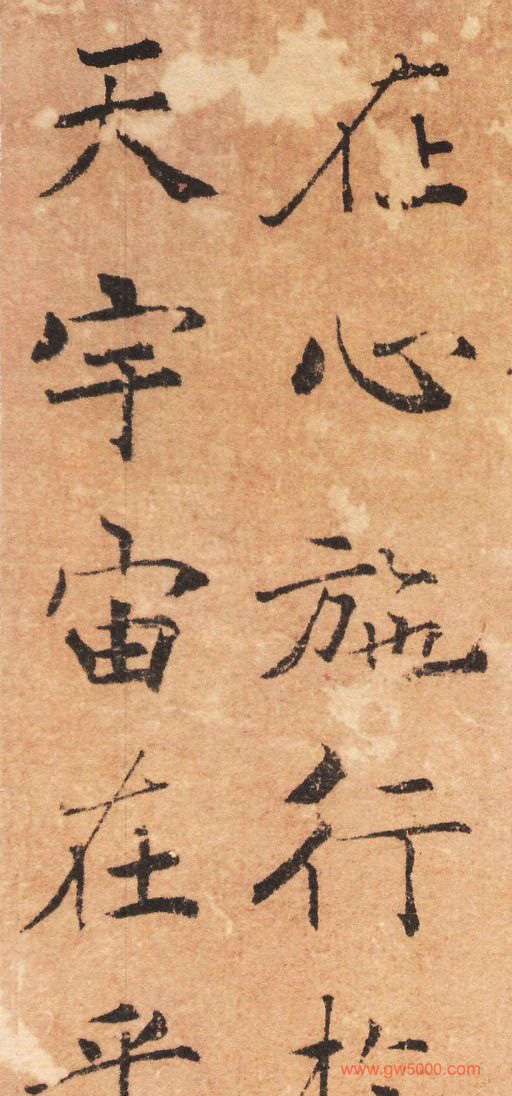 在心施行於
天宇宙在乎
www.gw5000.com